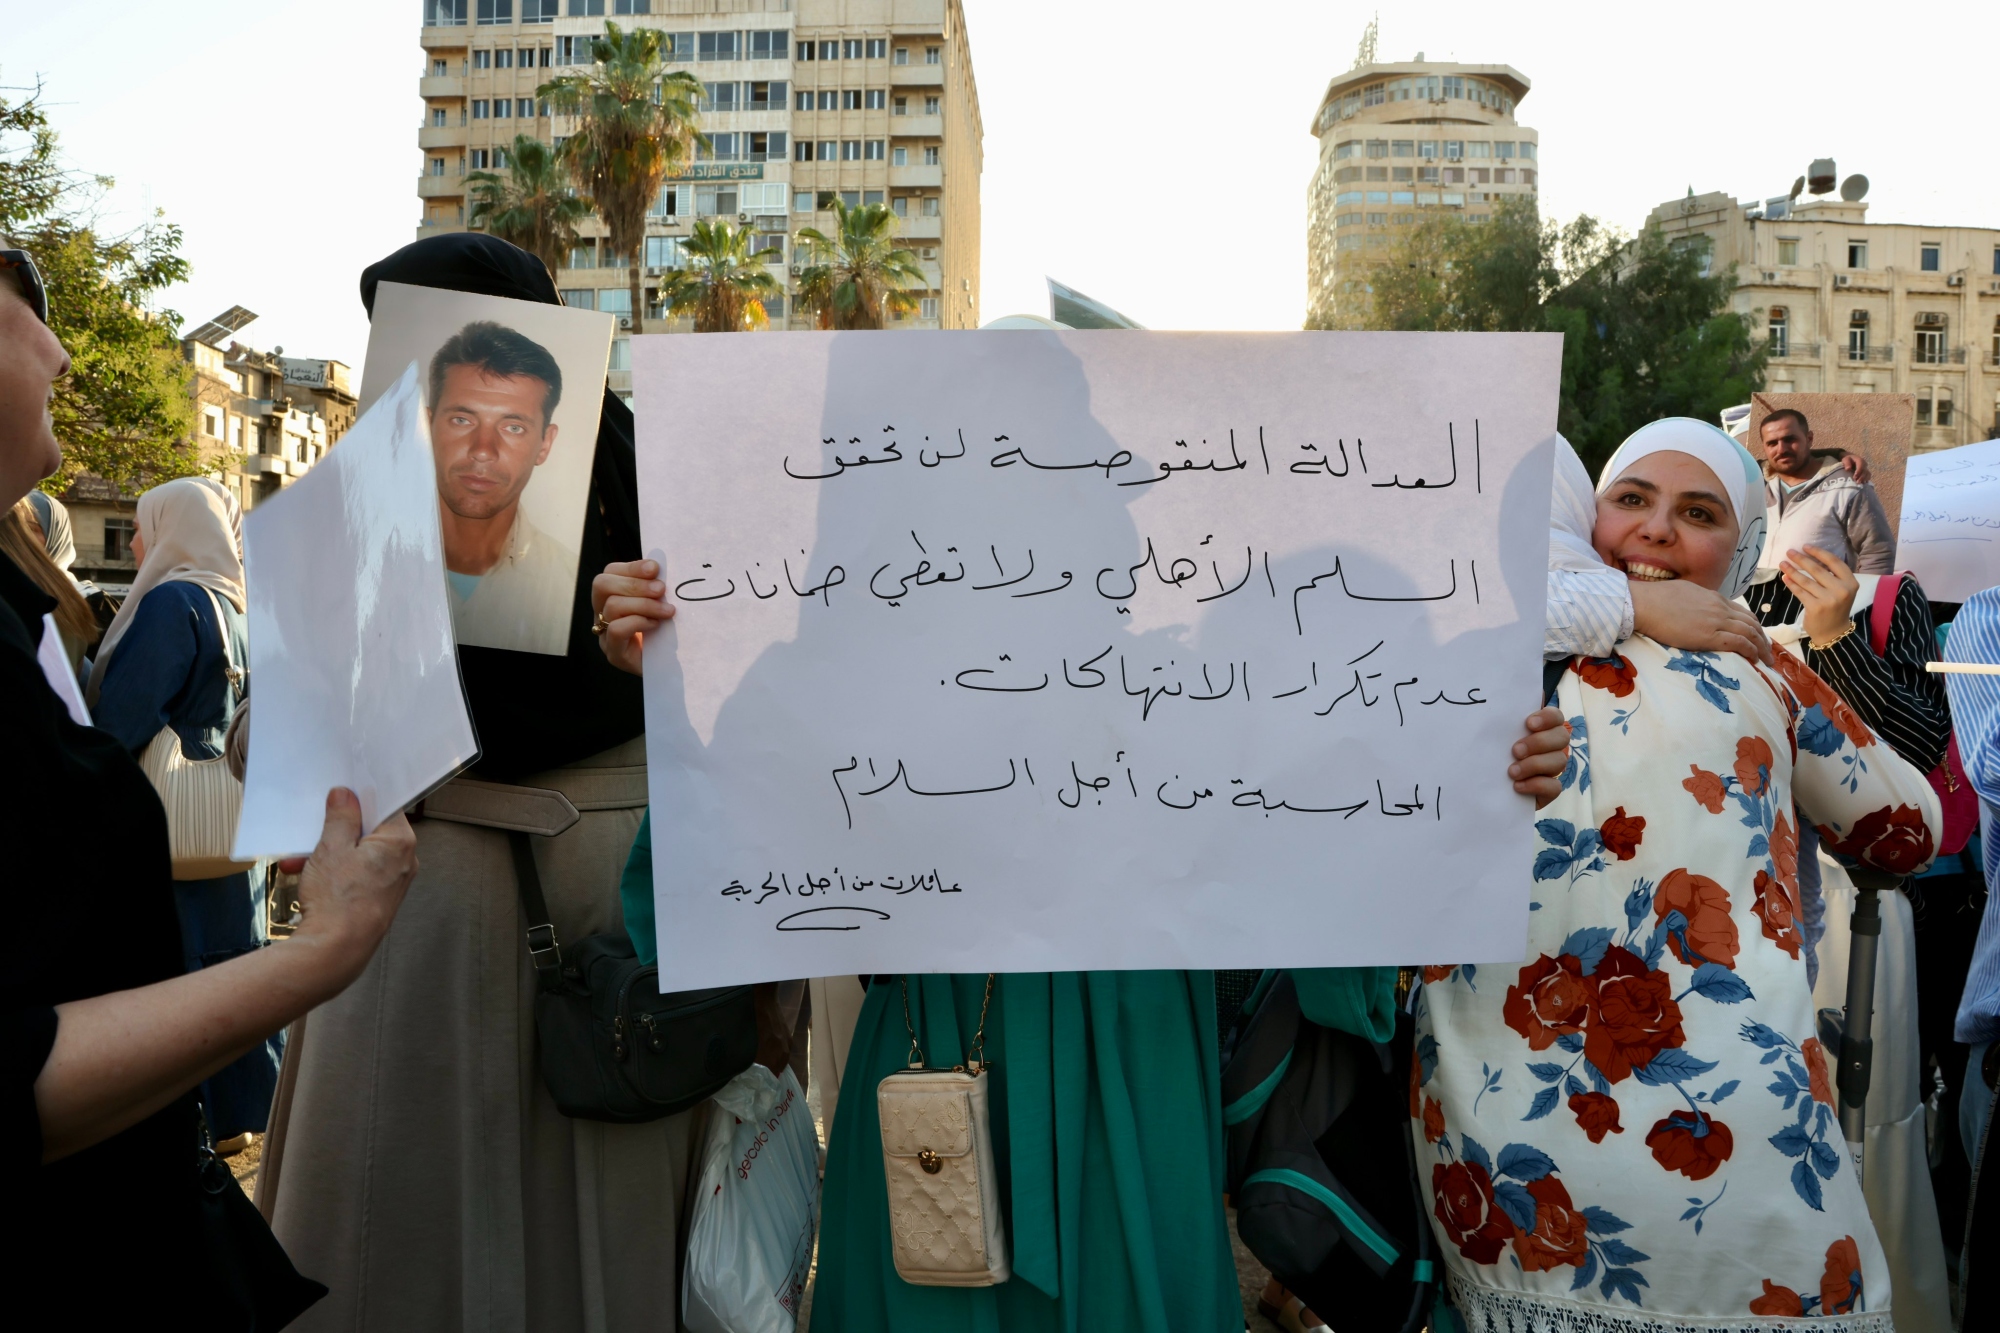 فندق الفرادي
النعمان
العدالة المنقوصة لن تحقق
السلم الأهلي ولا تعطي ضمانات
عدم تكرار الانتهاكات.
المحاسبة من أجل السلام
عائلات من أجل الحرية
gelcolo in